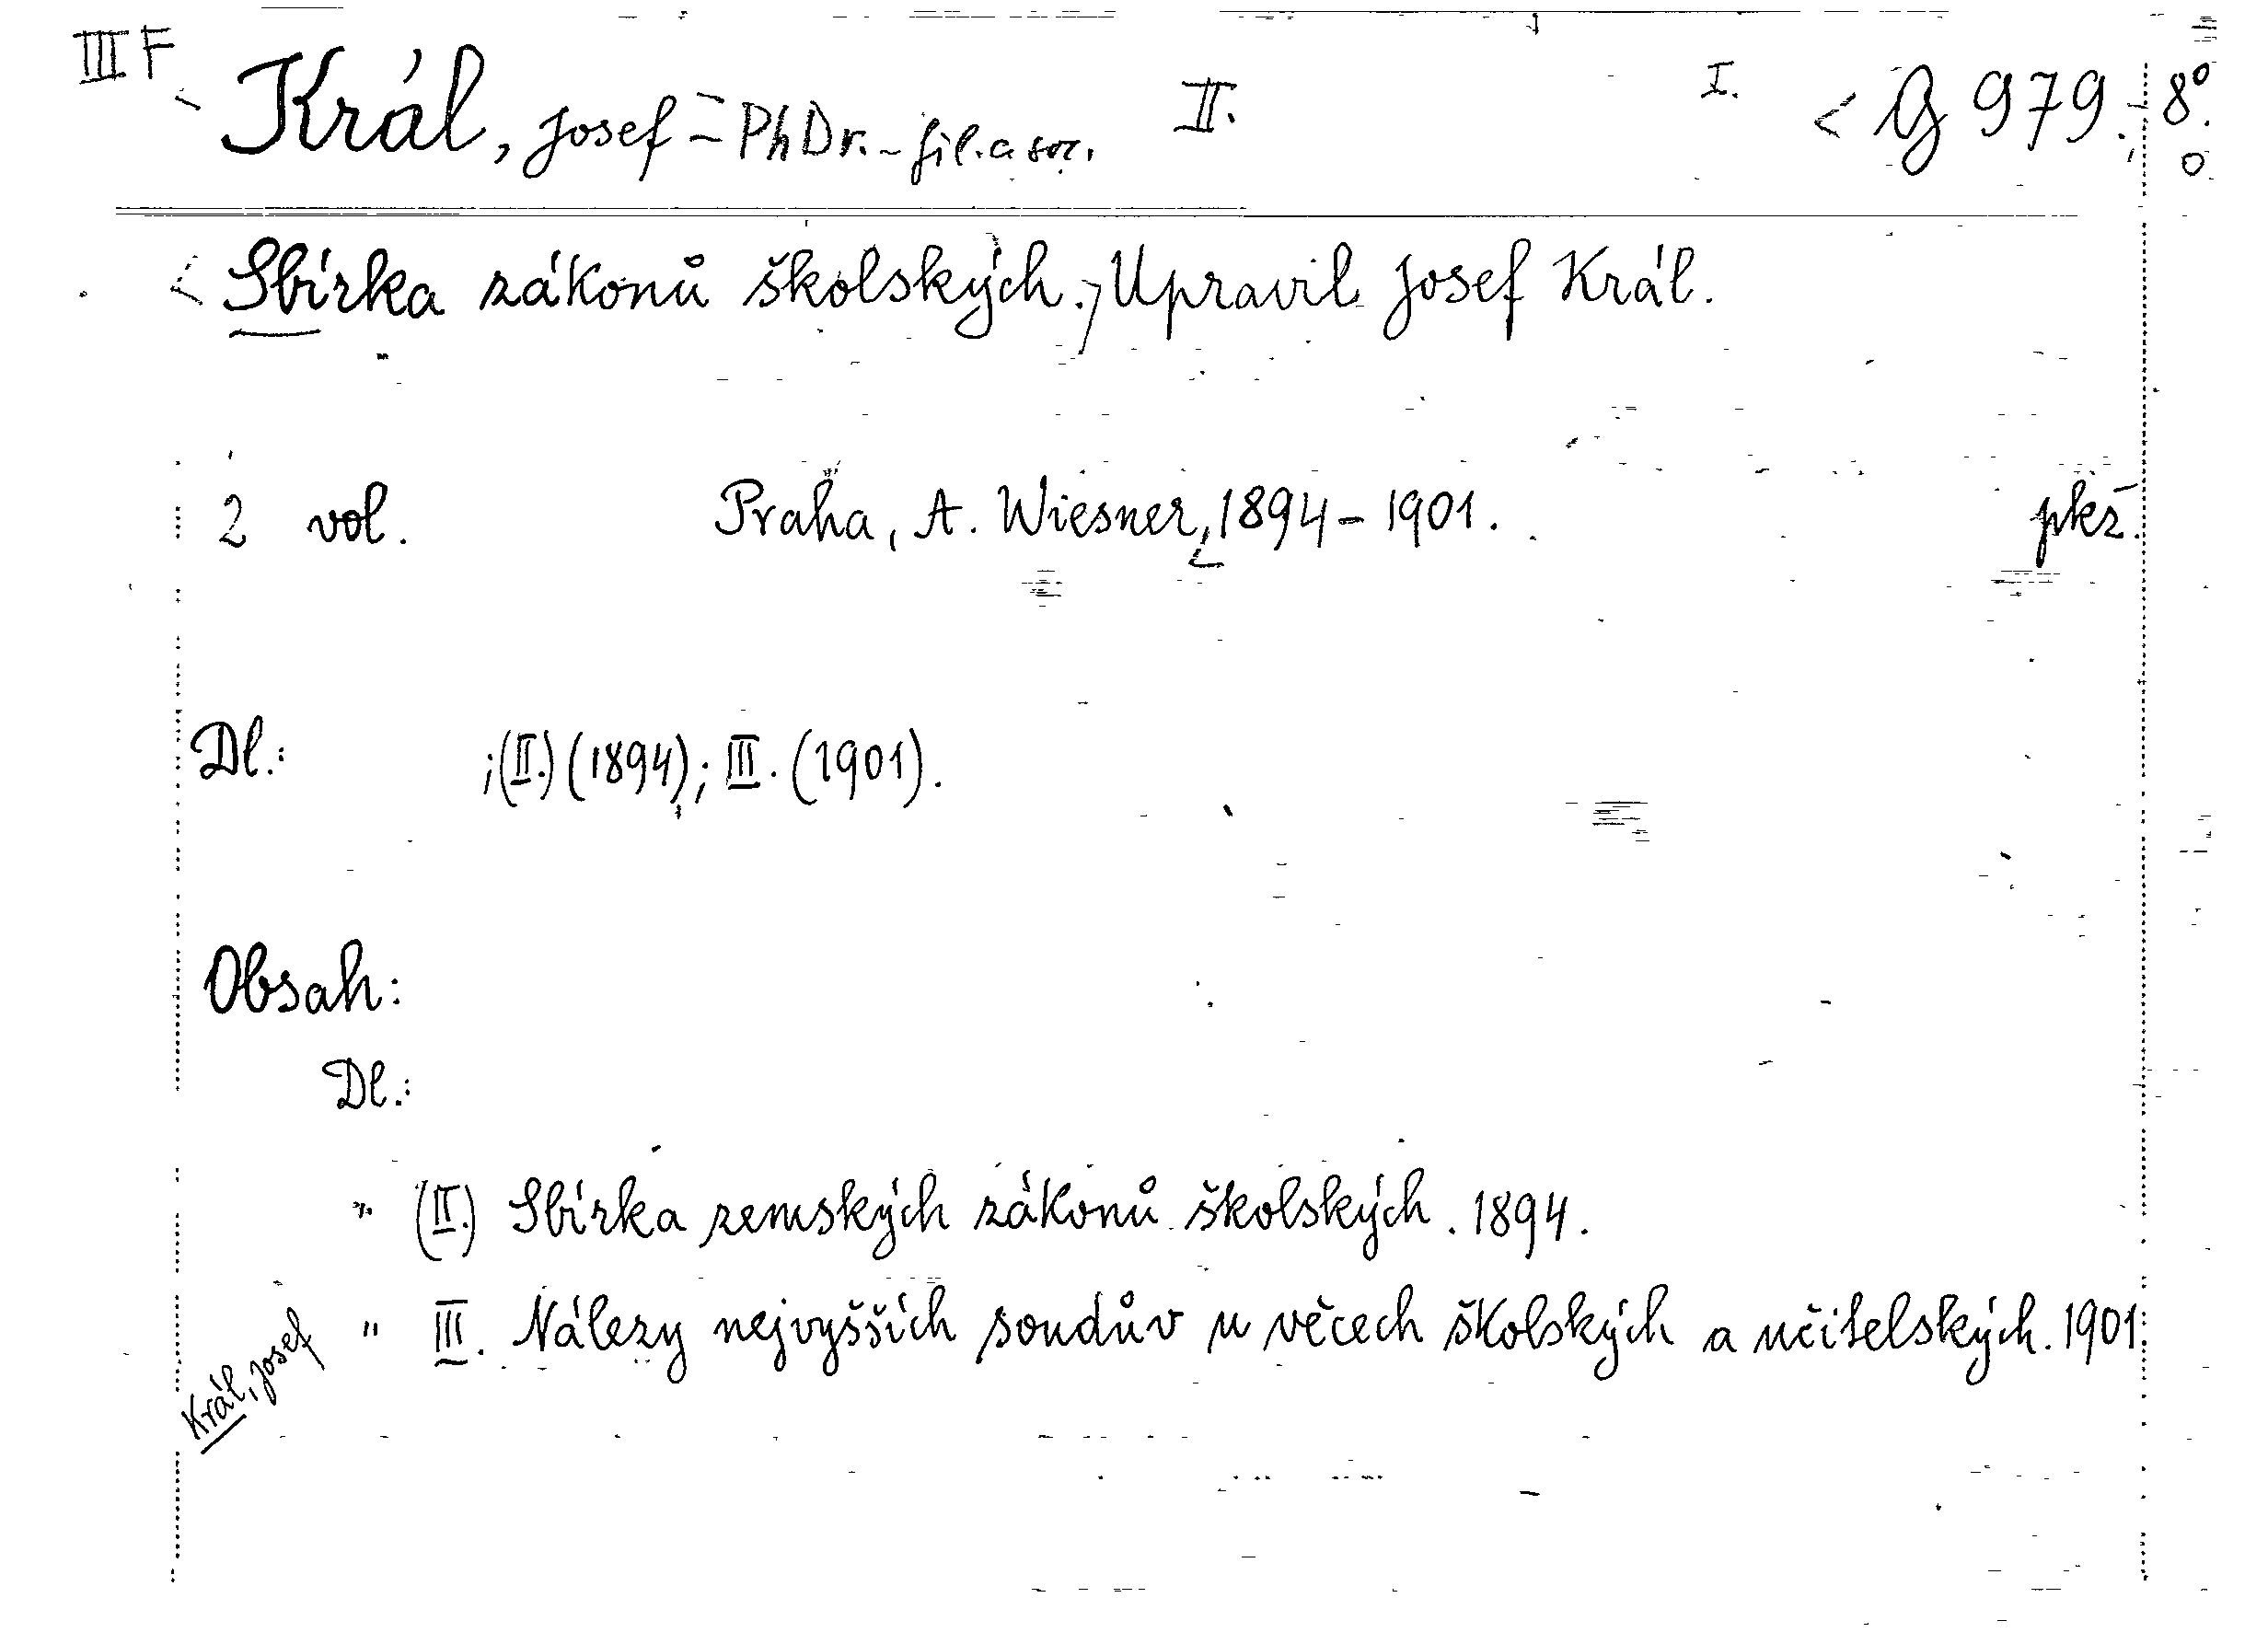 III F
Král, Josef = PhDr. - fil. a soc. II. I. G 979. 8°.
Sbírka zákonů školských. Upravil Josef Král.
2 vol. Praha, A. Wiesner, 1894-1901. pkž.
Dl.: ;(II.) (1894); III. (1901).
Obsah:
Dl.:
" (II.) Sbírka zemských zákonů školských. 1894.
" III. Nálezy nejvyšších soudův u věcech školských a učitelských. 1901.
Král, Josef